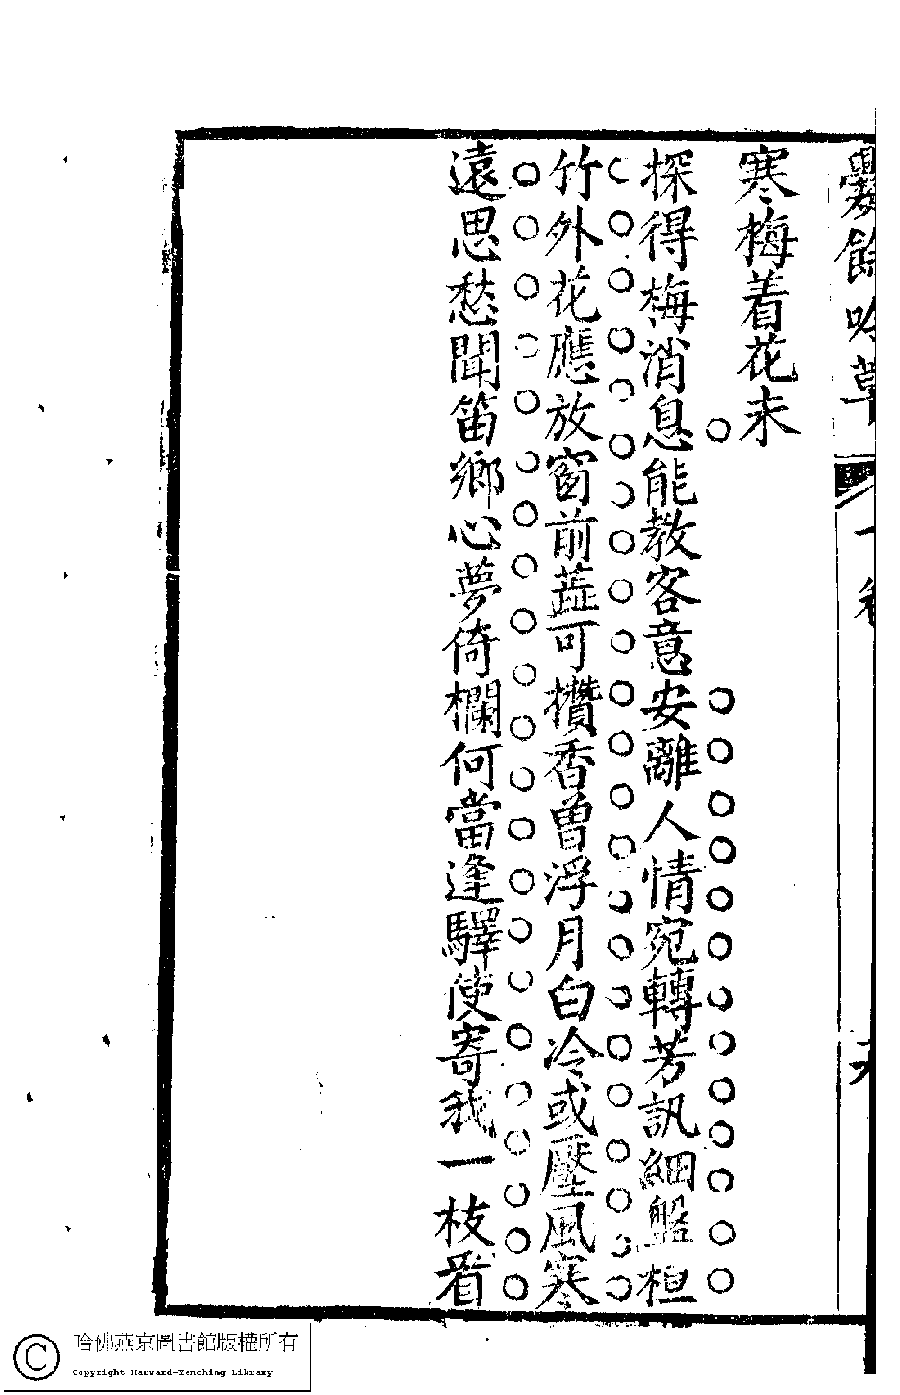 爨餘吟草
寒梅着花未
探得梅消息能教客意安離人情宛轉芳訊細盤桓
竹外花應放窗前蕋可攢香曾浮月白冷或壓風寒
遠思愁聞笛鄉心夢倚欄何當逢驛使寄我一枝看
哈佛燕京圖書館版權所有
Copyright Harvard-Yenching Library